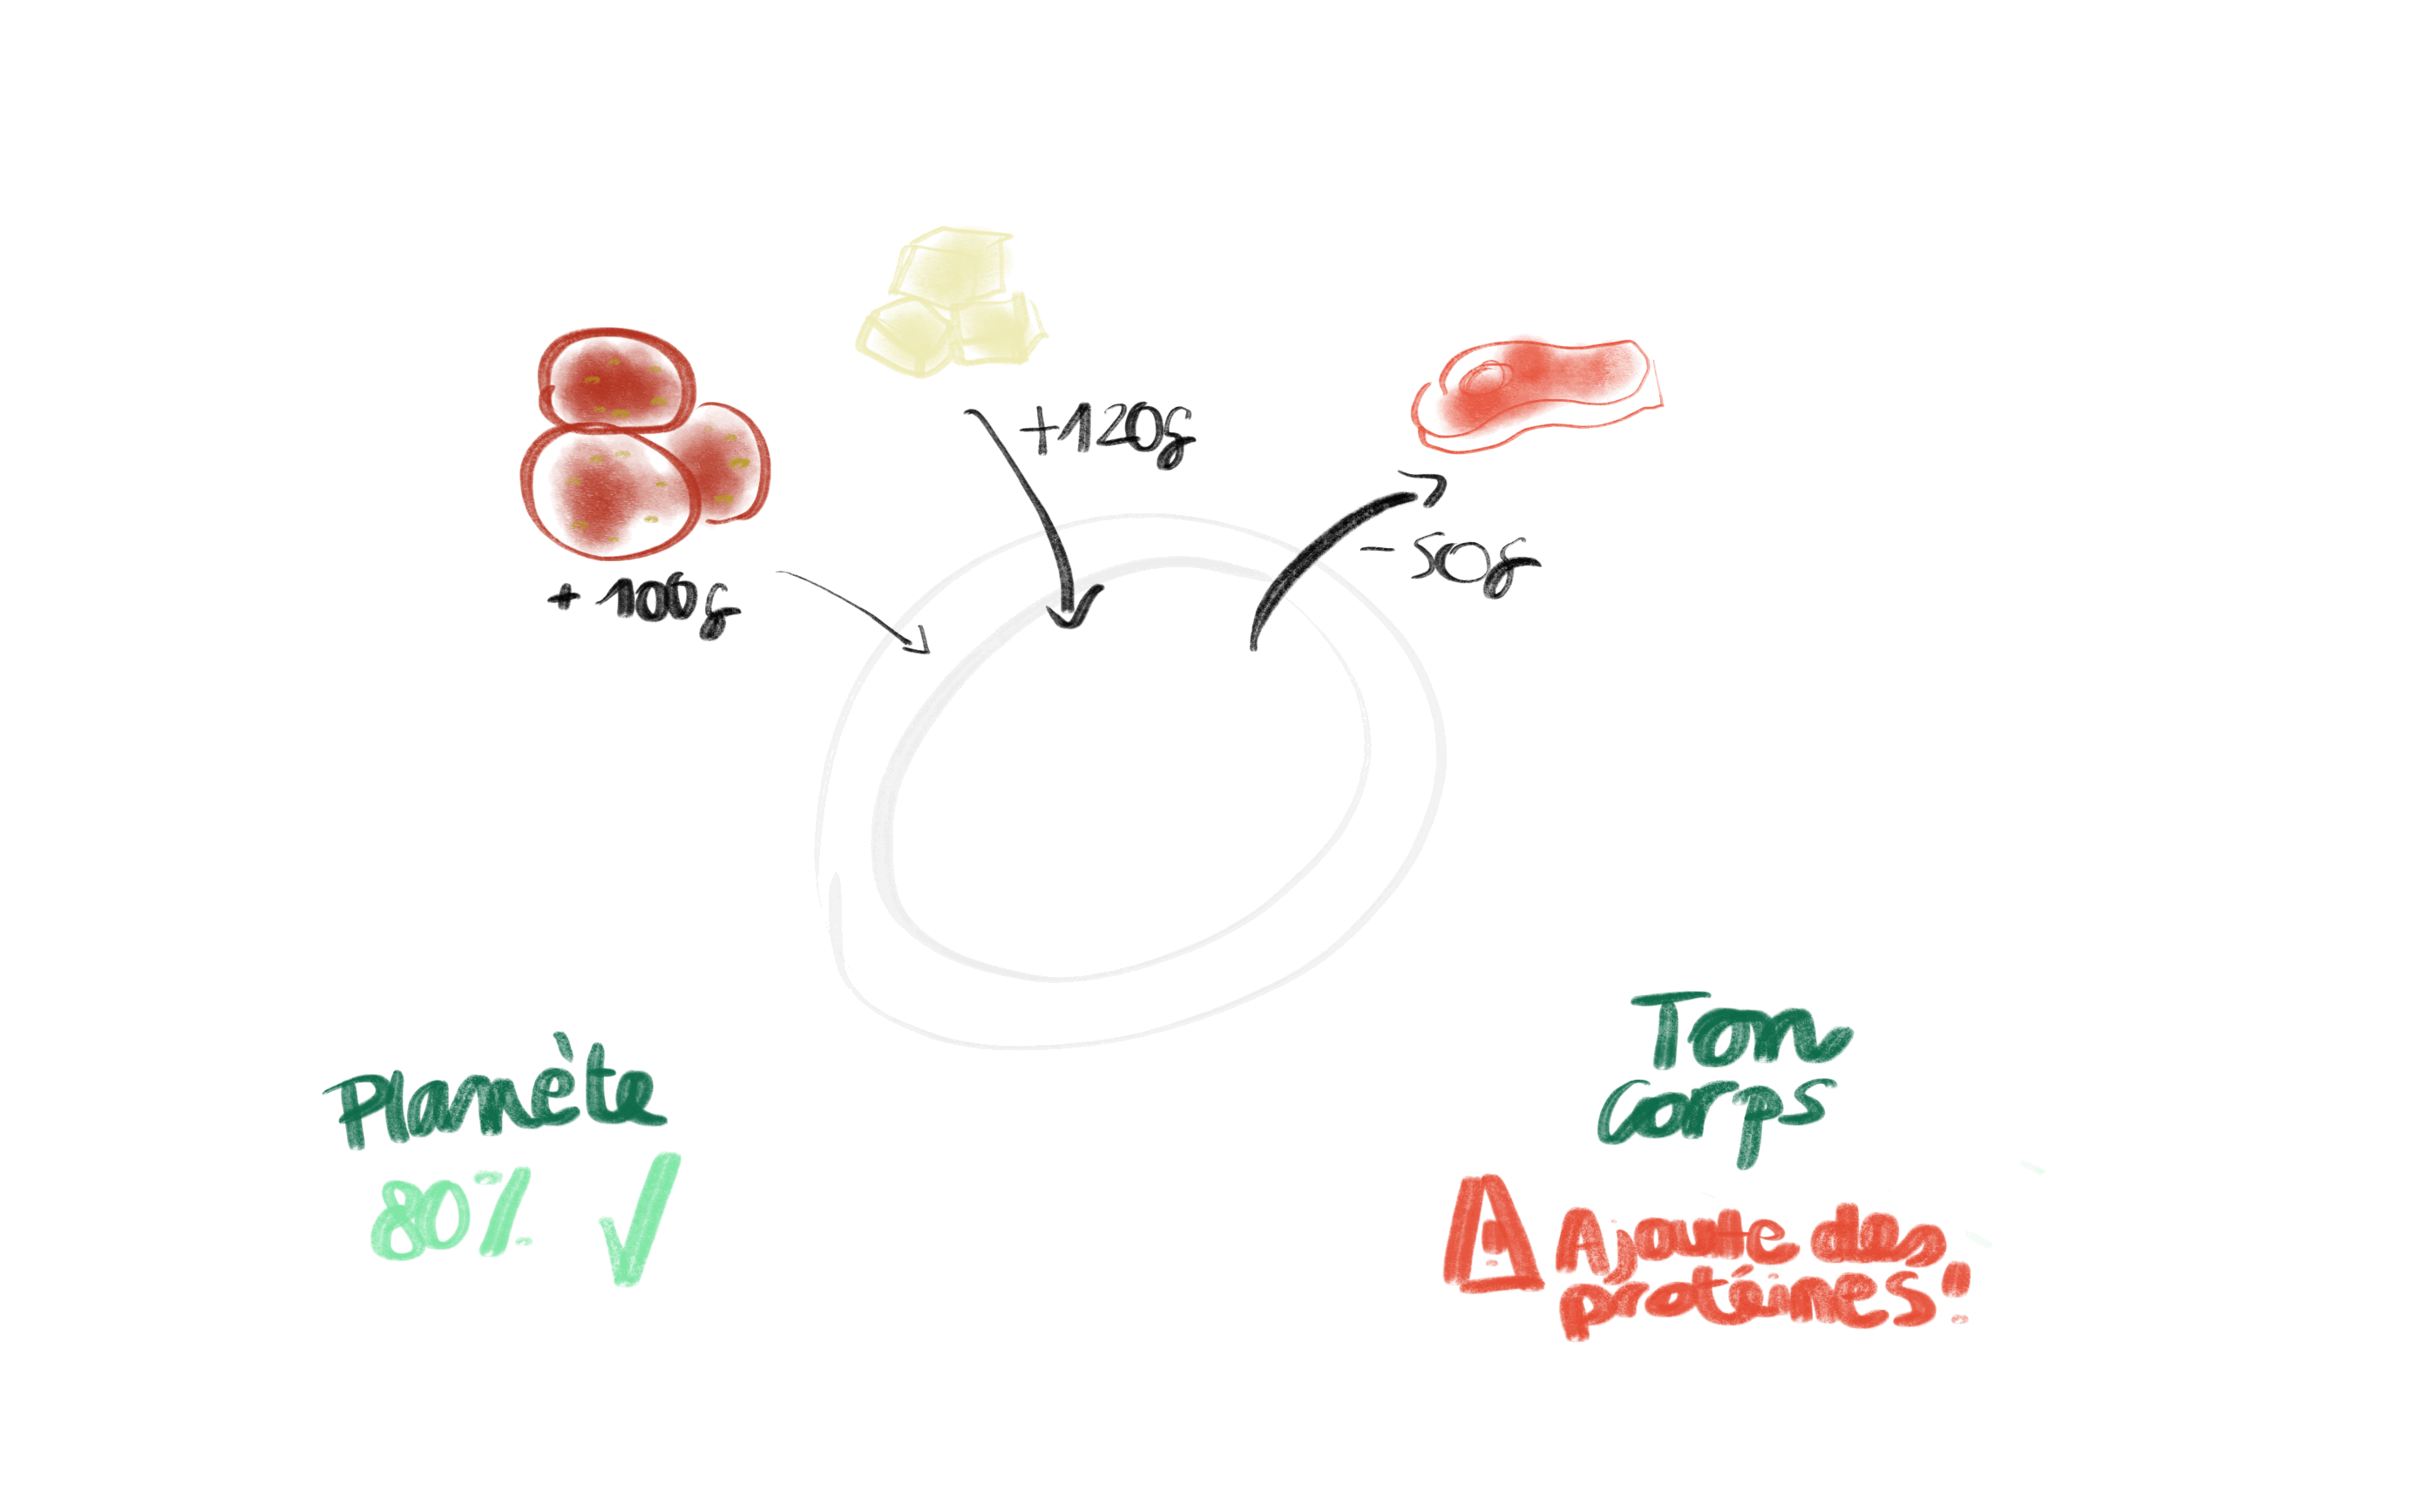 +120g
- 50g
+ 100g
Planète
80%
Ton
corps
Ajoute des
protéines!